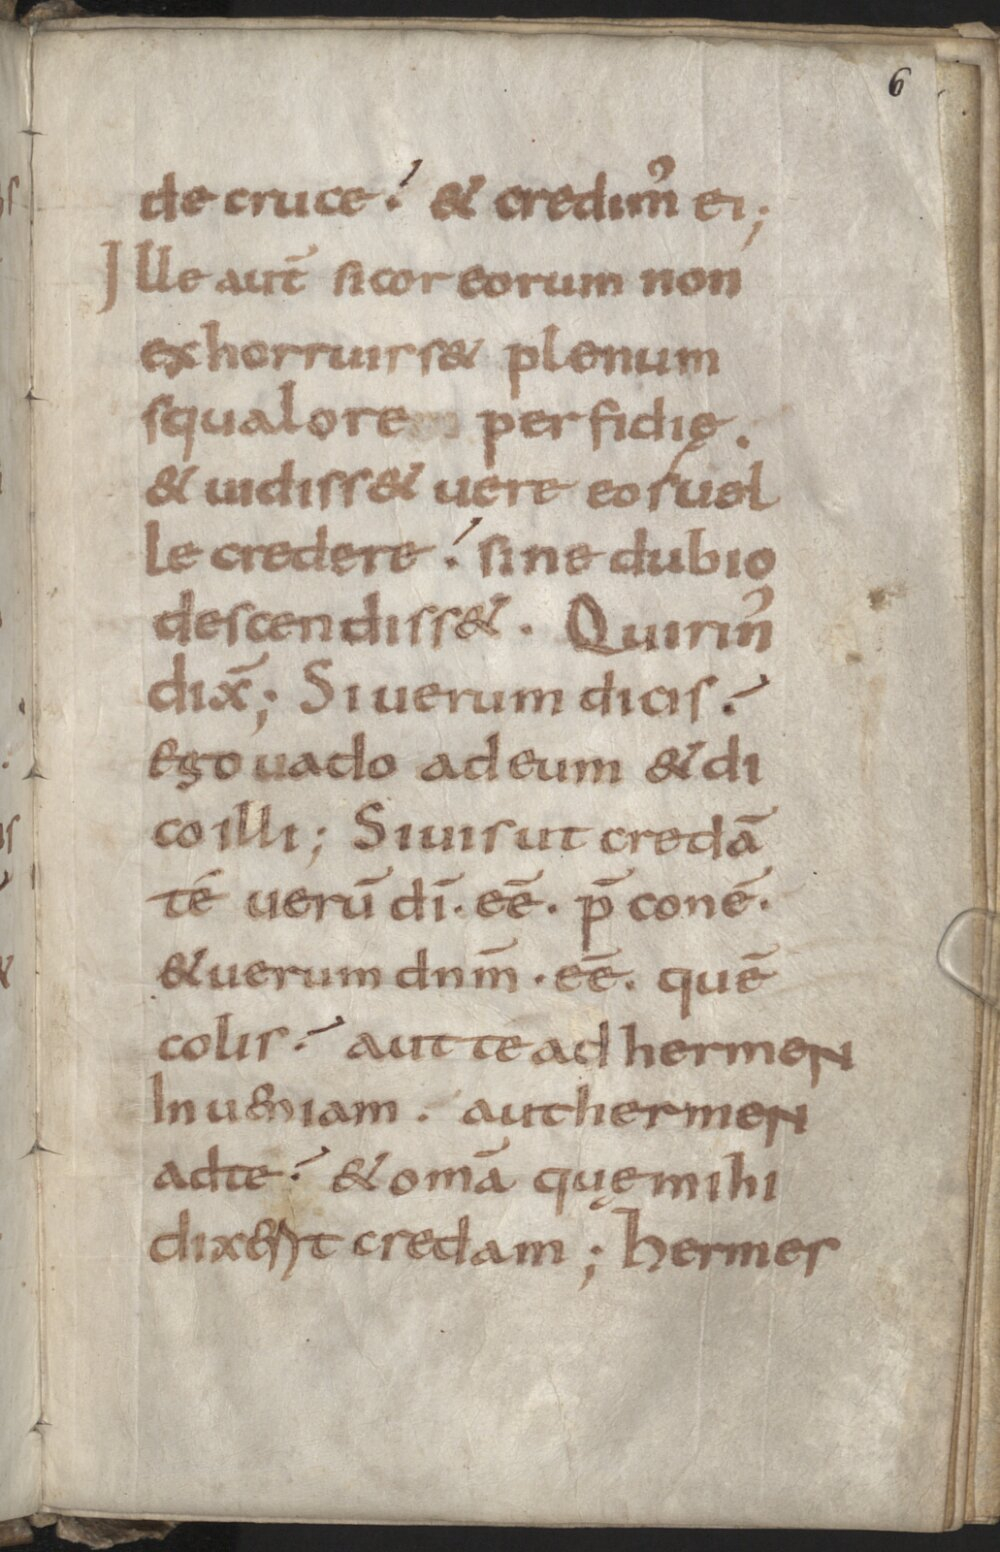 6
de cruce. & credim᾽ ei;
Ille aut̄ si cor eorum non
exhorruisset plenum
squalore perfidię.
& uidiss& uere eos uel
le credere. sine dubio
descendiss&. Quirin᾽
dix̄; Si uerum dicis.
ego uado ad eum & di
co illi; Si uis ut credā
té uerū dī. eē. p̄conē.
& uerum dnm̄. eē. quē
colis. aut te ad hermeN
In u&niam. aut hermeN
ad te. & omā quę mihi
credam; hermes